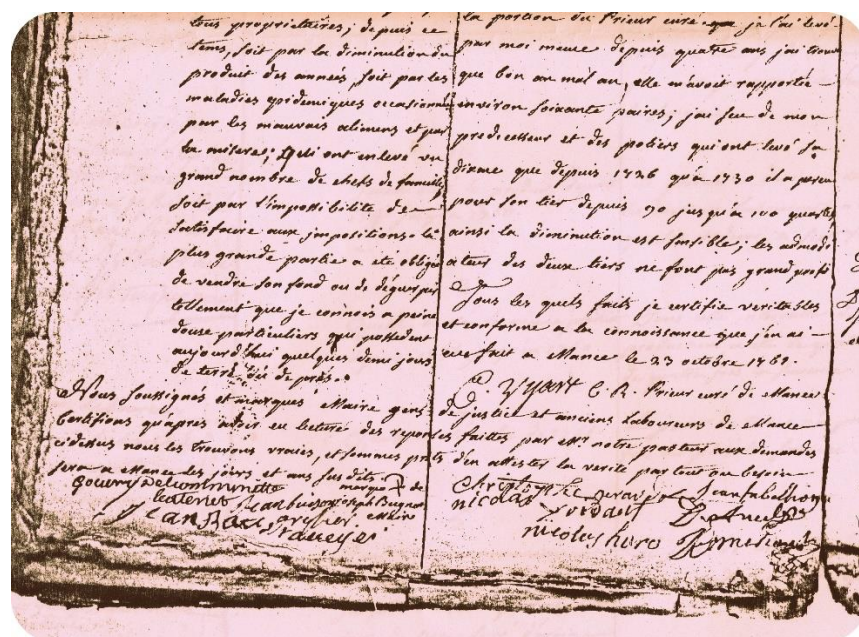 tous propriétaires; depuis ce
tems, soit par la diminution du
produit des années, soit par les
maladies epidemiques occasionnées
par les mauvais alimens et par
la misere; qui ont enlevé un
grand nombre de chefs de famille,
soit par l'impossibilité de
satisfaire aux impositions la
plus grande partie a eté obligé
de vendre son fond ou de déguerpir
tellement que je connois a peine
douse particuliers qui possedent
aujourd'hui quelques demi jours
de terre de prés.
la portion du Prieur curé que je l'ai levé
par moi meme depuis quatre ans j'ai trouvé
que bon an mal an, elle m'avoit rapportée
environ soixante paires; j'ai sçu de mon
predecesseur et des potiers qui ont levé sa
dixme que depuis 1726 qu'a 1730 il a perçu
pour son tier depuis 90 jusqu'a 100 quartes
ainsi la diminution est sensible; les admodi
ateurs des deux tiers ne font pas grand profit
Tous les quels faits je certifie veritables
et conforme a la connoissance que j'en ai
fait a Mance le 23 octobre 1761.
C. R. Prieur curé de Mance
Nous soussignés et marqués Maire gens de justice et anciens Laboureurs de Mance
Certifions qu'après avoir eu lecture des reponses faittes par Mr. notre pasteur aux demandes
cidessus nous les trouvons vraies, et sommes prets d'en attester la verité par tout ou besoin
sera a Mance les jours et ans susdits. marque de
Jean
Joseph
Nicolas
nicolas huro